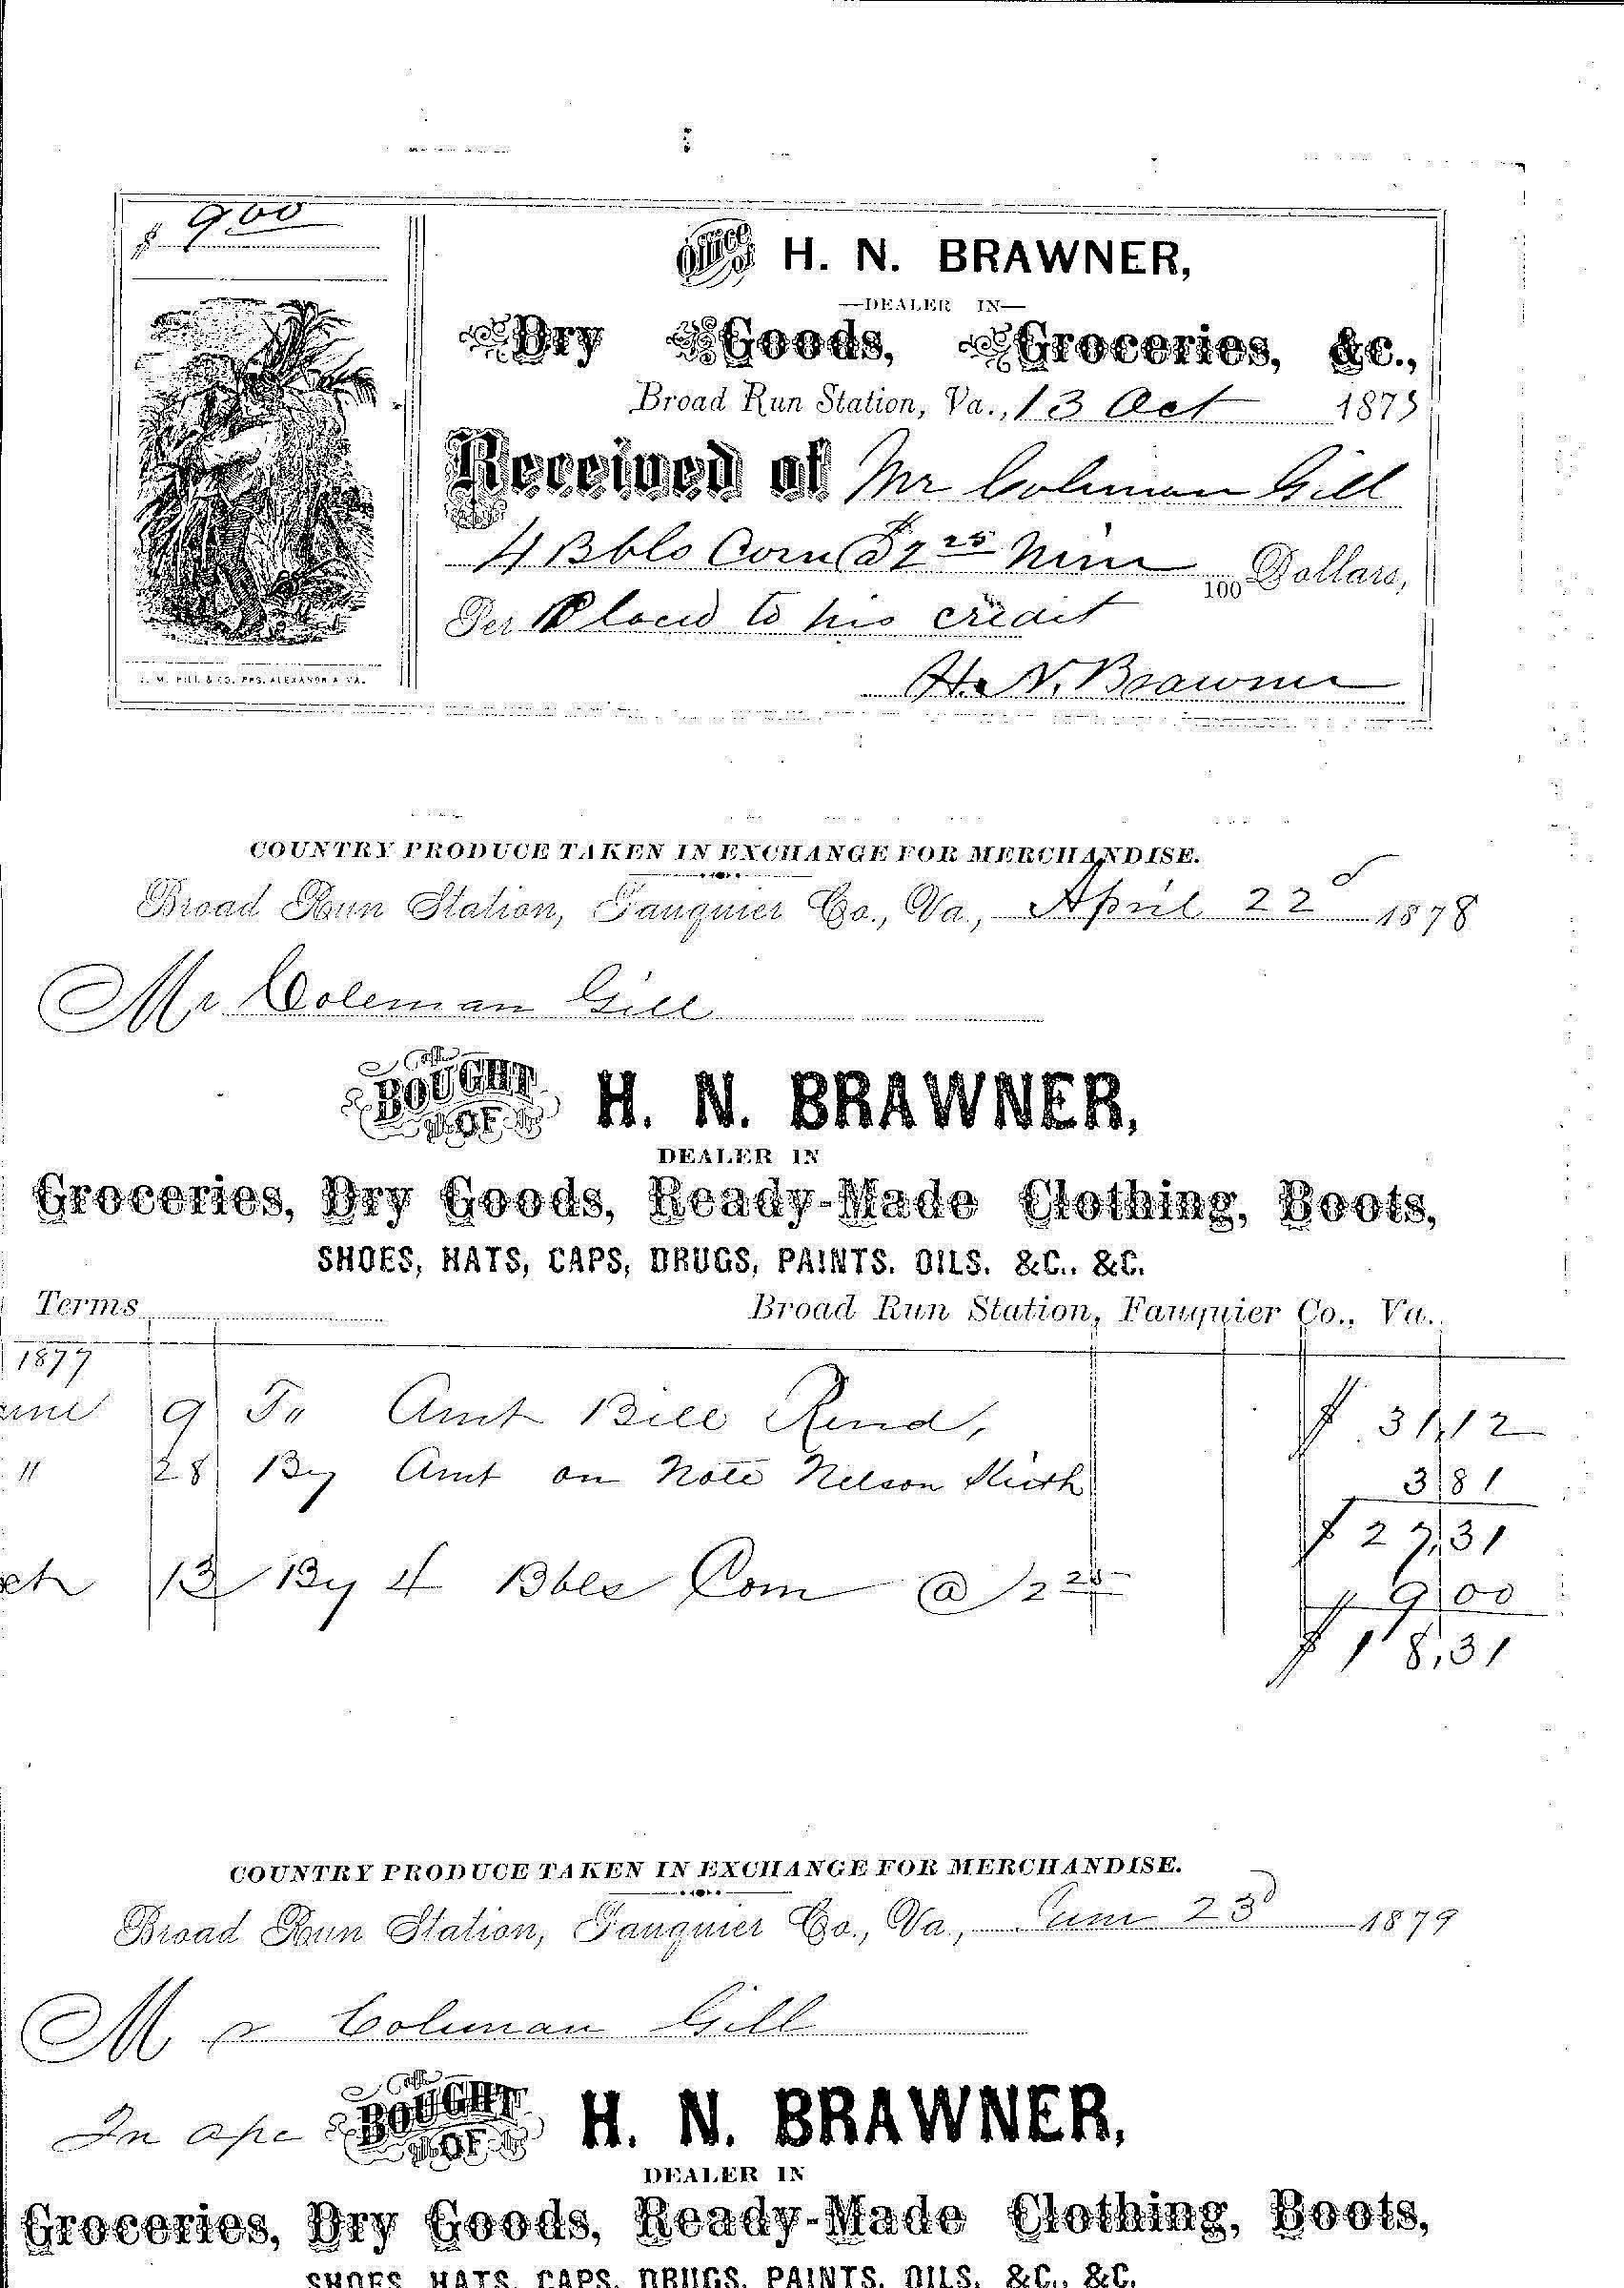 $ 9.00
Office of H. N. BRAWNER,
—DEALER IN—
Dry Goods, Groceries, &c.,
Broad Run Station, Va., 13 Oct 187
Received of Mr Coleman Gill
4 Bbls Corn @ $2 25 Nine 100 Dollars,
Per Placed to his credit
H. N. Brawner
J. M. HILL & CO. PRS. ALEXANDRIA VA.
COUNTRY PRODUCE TAKEN IN EXCHANGE FOR MERCHANDISE.
Broad Run Station, Fauquier Co., Va., April 22d 1878
Mr Coleman Gill
BOUGHT OF H. N. BRAWNER,
DEALER IN
Groceries, Dry Goods, Ready-Made Clothing, Boots,
SHOES, HATS, CAPS, DRUGS, PAINTS, OILS, &C., &C.
Terms Broad Run Station, Fauquier Co., Va.,
1877
une 9 To Amt Bill Rend, $ 31,12
" 28 By Amt on Note Nelson 3 81
$ 27,31
13 By 4 Bbls Corn @ 2 25 9 00
$ 18,31
COUNTRY PRODUCE TAKEN IN EXCHANGE FOR MERCHANDISE.
Broad Run Station, Fauquier Co., Va., 23d 1879
Mr Coleman Gill
In a/c BOUGHT OF H. N. BRAWNER,
DEALER IN
Groceries, Dry Goods, Ready-Made Clothing, Boots,
SHOES, HATS, CAPS, DRUGS, PAINTS, OILS, &C., &C.